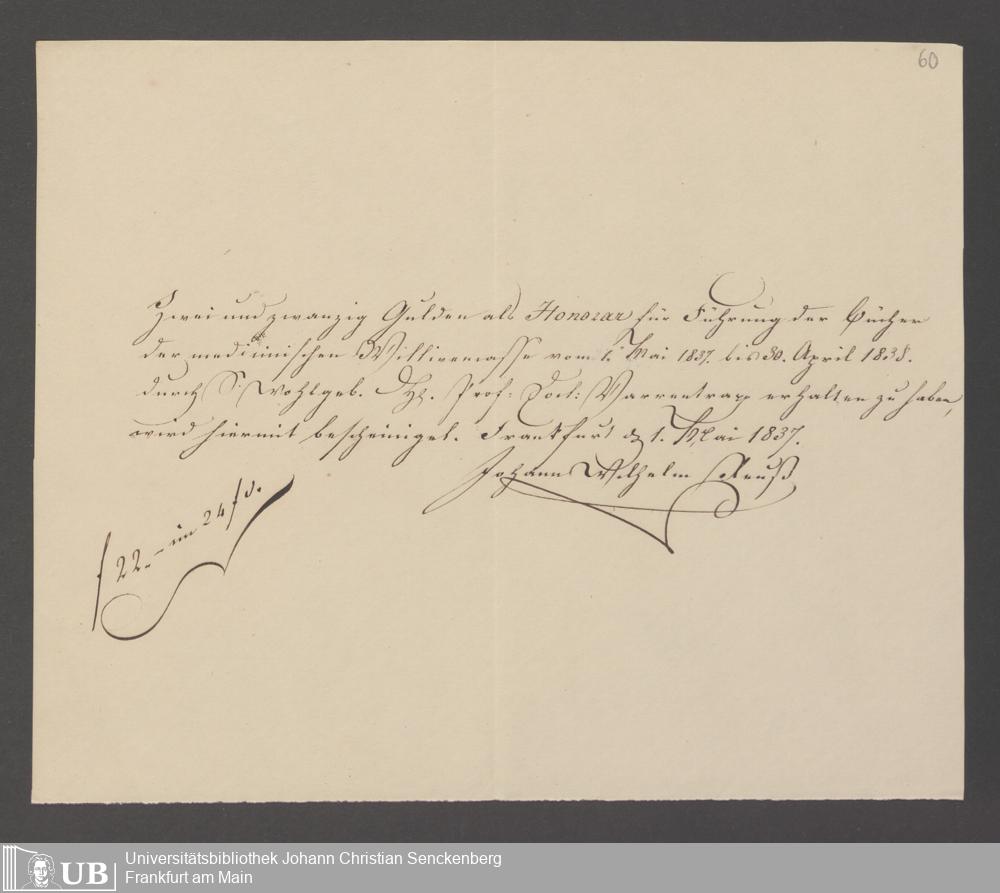 60
Zwei und zwanzig Gulden als Honorar für Führung der Bücher
der medicinischen Wittwencasse vom 1. Mai 1837. bis 30. April 1838.
durch S. Wohlgeb. Hr. Prof: Doct: Varrentrapp erhalten zu haben,
wird hiermit bescheinigt. Frankfurt d 1. Mai 1837.
Johann Wilhelm
f 22.– im 24 f
UB
Universitätsbibliothek Johann Christian Senckenberg
Frankfurt am Main